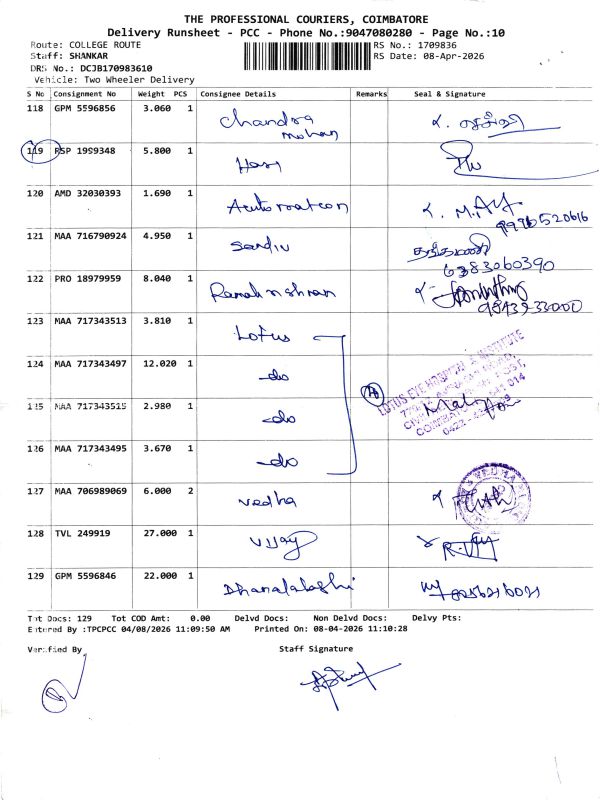 THE PROFESSIONAL COURIERS, COIMBATORE
Delivery Runsheet - PCC - Phone No.:9047080280 - Page No.:10
Route: COLLEGE ROUTE RS No.: 1709836
Staff: SHANKAR RS Date: 08-Apr-2026
DRS No.: DCJB170983610
Vehicle: Two Wheeler Delivery
S No Consignment No Weight PCS Consignee Details Remarks Seal & Signature
118 GPM 5596856 3.060 1 Chandra
mohan
119 RSP 1999348 5.800 1 Hari
120 AMD 32030393 1.690 1
121 MAA 716790924 4.950 1
தங்கமணி
6383060390
122 PRO 18979959 8.040 1
123 MAA 717343513 3.810 1 Lotus
124 MAA 717343497 12.020 1 -do
LOTUS EYE HOSPITAL & INSTITUTE
125 MAA 717343515 2.980 1 -do
126 MAA 717343495 3.670 1 -do
127 MAA 706989069 6.000 2 Vedha
128 TVL 249919 27.000 1 Vijay
129 GPM 5596846 22.000 1
Tot Docs: 129 Tot COD Amt: 0.00 Delvd Docs: Non Delvd Docs: Delvy Pts:
Entered By :TPCPCC 04/08/2026 11:09:50 AM Printed On: 08-04-2026 11:10:28
Verified By Staff Signature